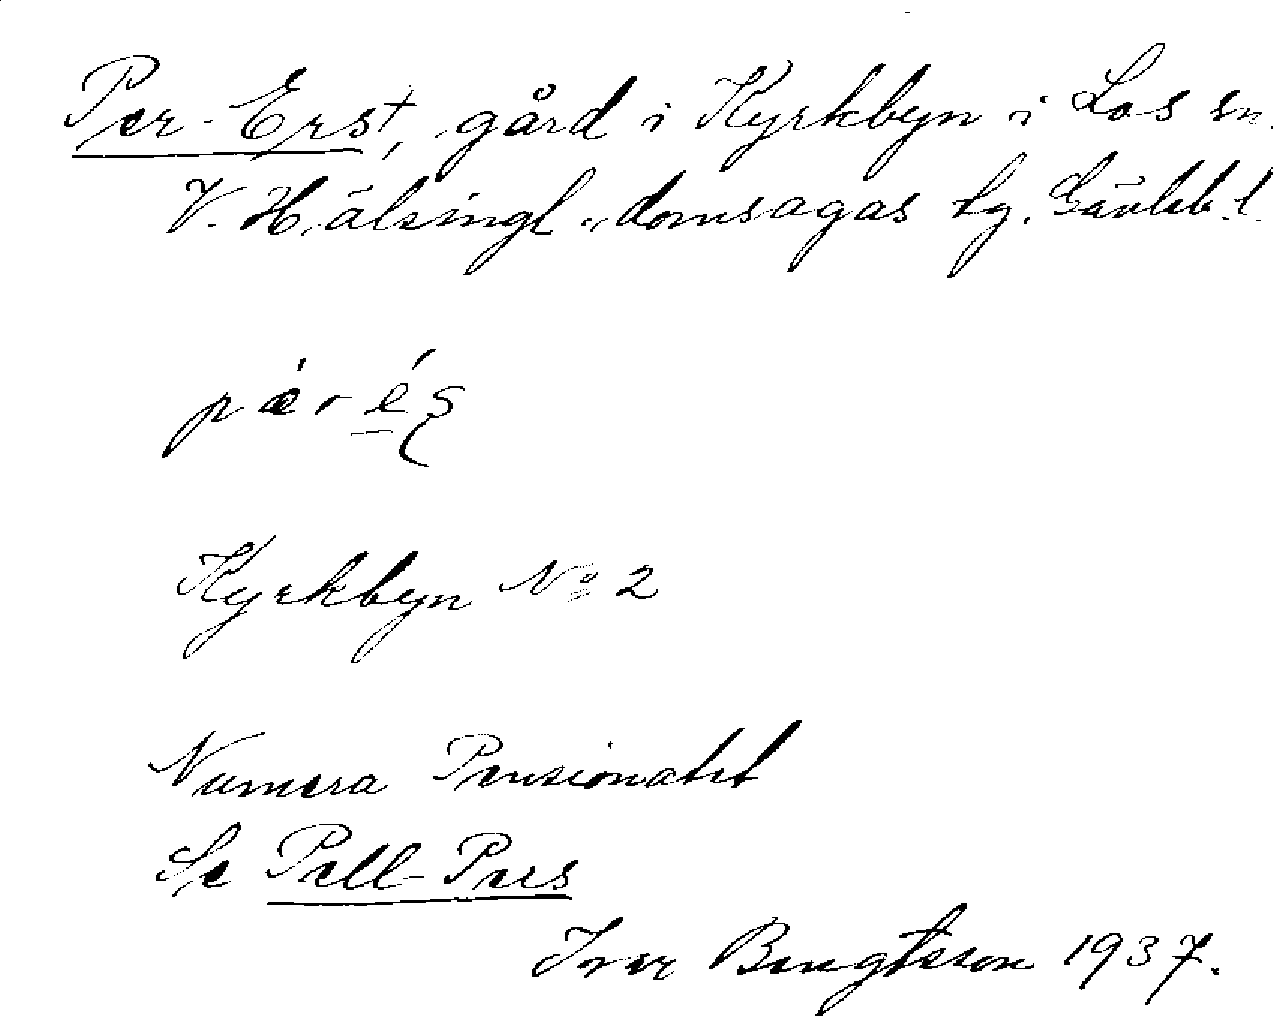 Per-Ers, gård i Kyrkbyn i Los sn.
V. Hälsingl., domsagas tg. Gävleb. l.
pær é ʂ
Kyrkbyn No 2
Numera Pensionatet
Se Pell-Pers
Ivar Bengtsson 1937.